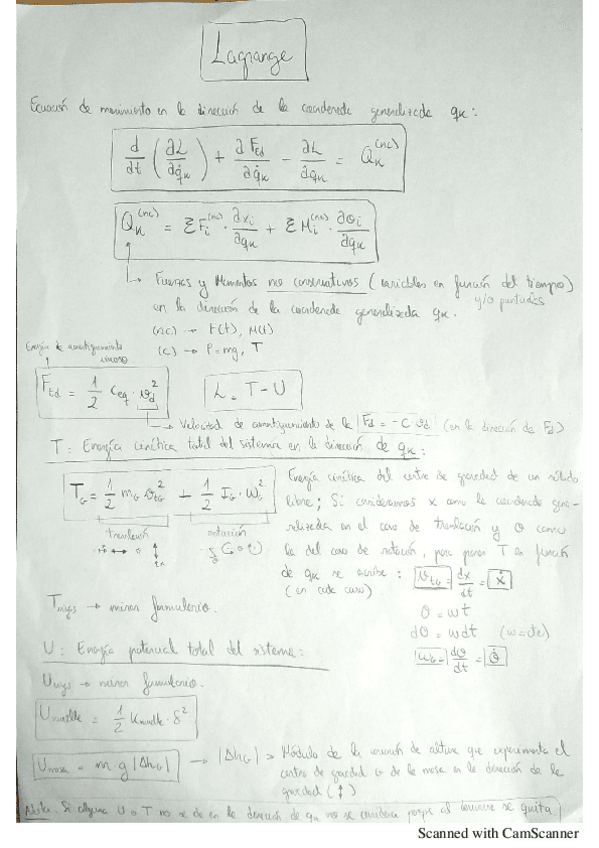 Lagrange
Ecuación de movimiento en la dirección de la coordenada generalizada qₖ:
d/dt (∂L/∂q̇ₖ) + ∂F_td/∂q̇ₖ - ∂L/∂qₖ = Qₖ^(nc)
Qₖ^(nc) = Σ Fᵢ^(nc) · ∂xᵢ/∂qₖ + Σ Mᵢ^(nc) · ∂θᵢ/∂qₖ
↳ Fuerzas y Momentos no conservativos (variables en función del tiempo)
y/o puntuales
en la dirección de la coordenada generalizada qₖ.
(nc) → F(t), M(t)
(c) → P=mg, T
Energía de amortiguamiento
viscoso
F_td = 1/2 C_eq · v_d²
L = T - U
↳ Velocidad de amortiguamiento de la F_d = -C v_d (en la dirección de F_d)
T: Energía cinética total del sistema en la dirección de qₖ:
T_G = 1/2 m_G v_tG² + 1/2 I_G · ω_G²
traslación
rotación
Energía cinética del centro de gravedad de un sólido
libre; Si consideramos x como la coordenada gene-
ralizada en el caso de traslación y θ como
la del caso de rotación, para poner T en función
de qₖ se escribe: v_tG = dx/dt = ẋ
(en este caso)
θ = ωt
dθ = ωdt (ω=cte)
ω_G = dθ/dt = θ̇
→ mirar formulario.
U: Energía potencial total del sistema:
→ mirar formulario.
U_muelle = 1/2 K_muelle · δ²
U_masa = m · g |Δh_G| → |Δh_G| > Módulo de la variación de altura que experimenta el
centro de gravedad G de la masa en la dirección de la
gravedad (↕)
Nota: Si alguna U o T no se da en la dirección de qₖ no se considera porque al derivarse se quita.
Scanned with CamScanner